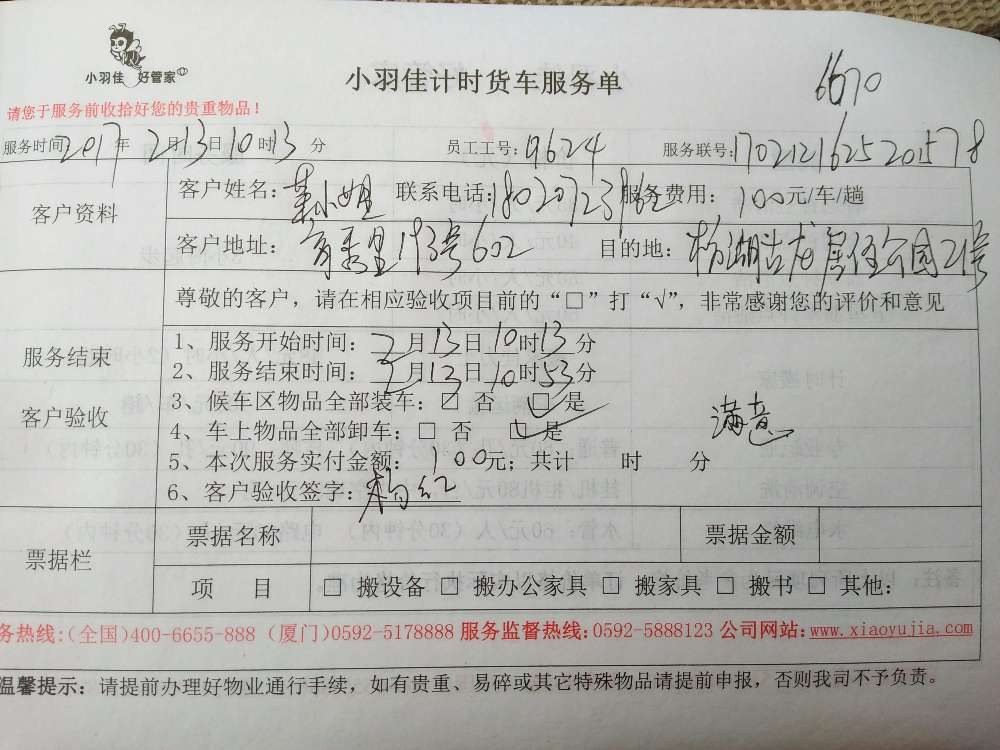 小羽佳 好管家
小羽佳计时货车服务单
6670
请您于服务前收拾好您的贵重物品！
服务时间 2017 年 2 月 13 日 10 时 13 分 员工工号: 9624 服务联号: 17021216252 01578
客户资料
客户姓名: 小姐 联系电话: 服务费用: 100元/车/趟
客户地址: 里193号602 目的地: 公园21号
尊敬的客户，请在相应验收项目前的“□”打“√”，非常感谢您的评价和意见
服务结束
客户验收
1、服务开始时间: 2月13日10时13分
2、服务结束时间: 2月13日10时53分
3、候车区物品全部装车: □ 否 ☑ 是
4、车上物品全部卸车: □ 否 ☑ 是
满意
5、本次服务实付金额: 100元; 共计 时 分
6、客户验收签字: 杨红
票据栏
票据名称 票据金额
项 目 □ 搬设备 □ 搬办公家具 □ 搬家具 □ 搬书 □ 其他:
务热线:(全国)400-6655-888 (厦门)0592-5178888 服务监督热线:0592-5888123 公司网站:www.xiaoyujia.com
温馨提示: 请提前办理好物业通行手续，如有贵重、易碎或其它特殊物品请提前申报，否则我司不予负责。